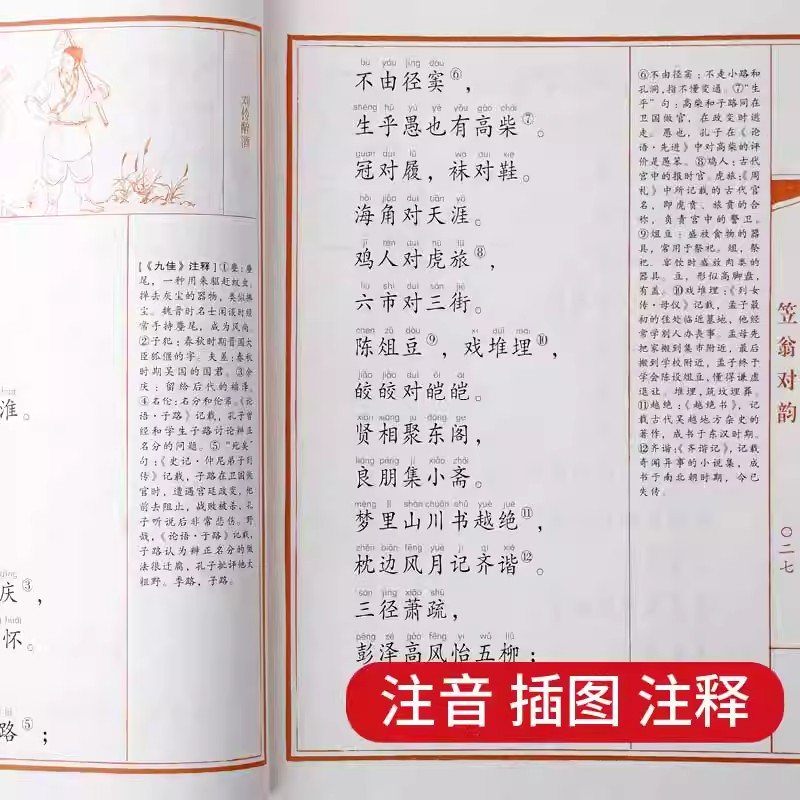 刘伶醉酒
[《九佳》注释]①麈:麈
尾,一种用来驱赶蚊虫、
掸去灰尘的器物,类似拂
尘。魏晋时名士闲谈时经
常手持麈尾,成为风尚。
②子犯:春秋时期晋国大
臣狐偃的字。夫差:春秋
时期吴国的国君。③余
庆:留给后代的福泽。
④名伦:名分和伦常。《论
语·子路》记载,孔子曾
经和学生子路讨论辨正
名分的问题。⑤“死矣”
句:《史记·仲尼弟子列
传》记载,子路在卫国做
官时,遭遇宫廷政变,他
前去阻止,战败被害。孔
子听说后非常悲伤。野
哉,《论语·子路》记载,
子路认为辨正名分的做
法很迂腐,孔子批评他太
粗野。季路,子路。
淮。
庆③,
怀。
路⑤;
bù yóu jìng dòu
不由径窦⑥,
shēng hū yú yě yǒu gāo chái
生乎愚也有高柴⑦。
guān duì lǚ wà duì xié
冠对履,袜对鞋。
hǎi jiǎo duì tiān yá
海角对天涯。
jī rén duì hǔ lǚ
鸡人对虎旅⑧,
liù shì duì sān jiē
六市对三街。
chén zǔ dòu xì duī mái
陈俎豆⑨,戏堆埋⑩,
jiǎo jiǎo duì ái ái
皎皎对皑皑。
xián xiàng jù dōng gé
贤相聚东阁,
liáng péng jí xiǎo zhāi
良朋集小斋。
mèng lǐ shān chuān shū yuè jué
梦里山川书越绝⑪,
zhěn biān fēng yuè jì qí xié
枕边风月记齐谐⑫。
sān jìng xiāo shū
三径萧疏,
péng zé gāo fēng yí wǔ liǔ
彭泽高风怡五柳;
⑥不由径窦:不走小路和
孔洞,指不懂变通。⑦“生
乎”句:高柴和子路同在
卫国做官,在政变时逃
走。愚也,孔子在《论
语·先进》中对高柴的评
价是愚笨。⑧鸡人:古代
宫中的报时官。虎旅:《周
礼》中所记载的古代官
名,即虎贲、旅贲的合
称,负责宫中的警卫。
⑨俎豆:盛放食物的器
具,常用于祭祀。俎,祭
祀、宴饮时盛放肉类的
器具。豆,形似高脚盘,
有盖。⑩戏堆埋:《列女
传·母仪》记载,孟子最
初的住处临近墓地,他经
常学别人办丧事。孟母先
把家搬到集市附近,最后
搬到学校附近,孟子终于
学会陈设俎豆,懂得谦虚
退让。堆埋,筑坟埋葬。
⑪越绝:《越绝书》,记
载古代吴越地方杂史的
著作,成书于东汉时期。
⑫齐谐:《齐谐记》,记载
奇闻异事的小说集,成
书于南北朝时期,今已
失传。
笠翁对韵
〇二七
注音 插图 注释